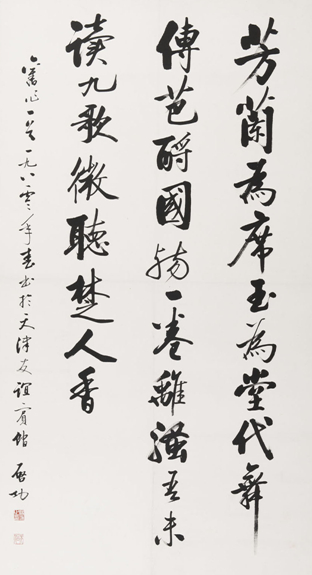 芳蘭為席玉為堂代舞
傳芭酹國殤一卷離騷吾未
讀九歌微聽楚人香
舊作一首一九八零年春書於天津友誼賓館 啓功